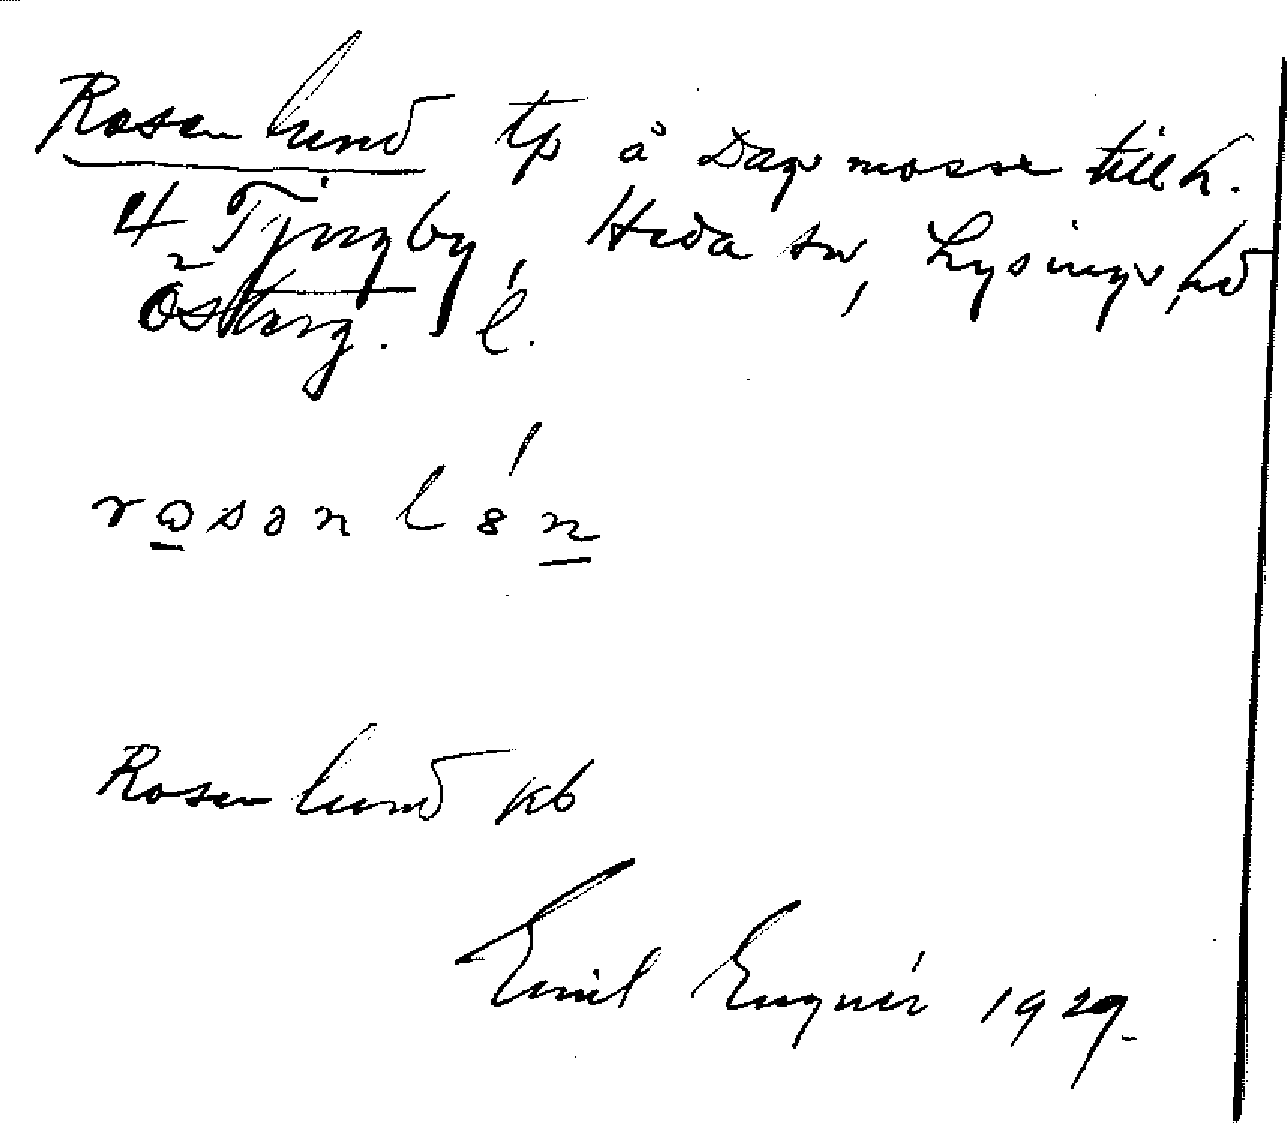 Rosenlund tp å Dagsmosse till h.
4 Tjugby, Heda sn, Lysings hd
Österg. l.
rosənlsn
Rosenlund kb
Emil Engnér 1929.